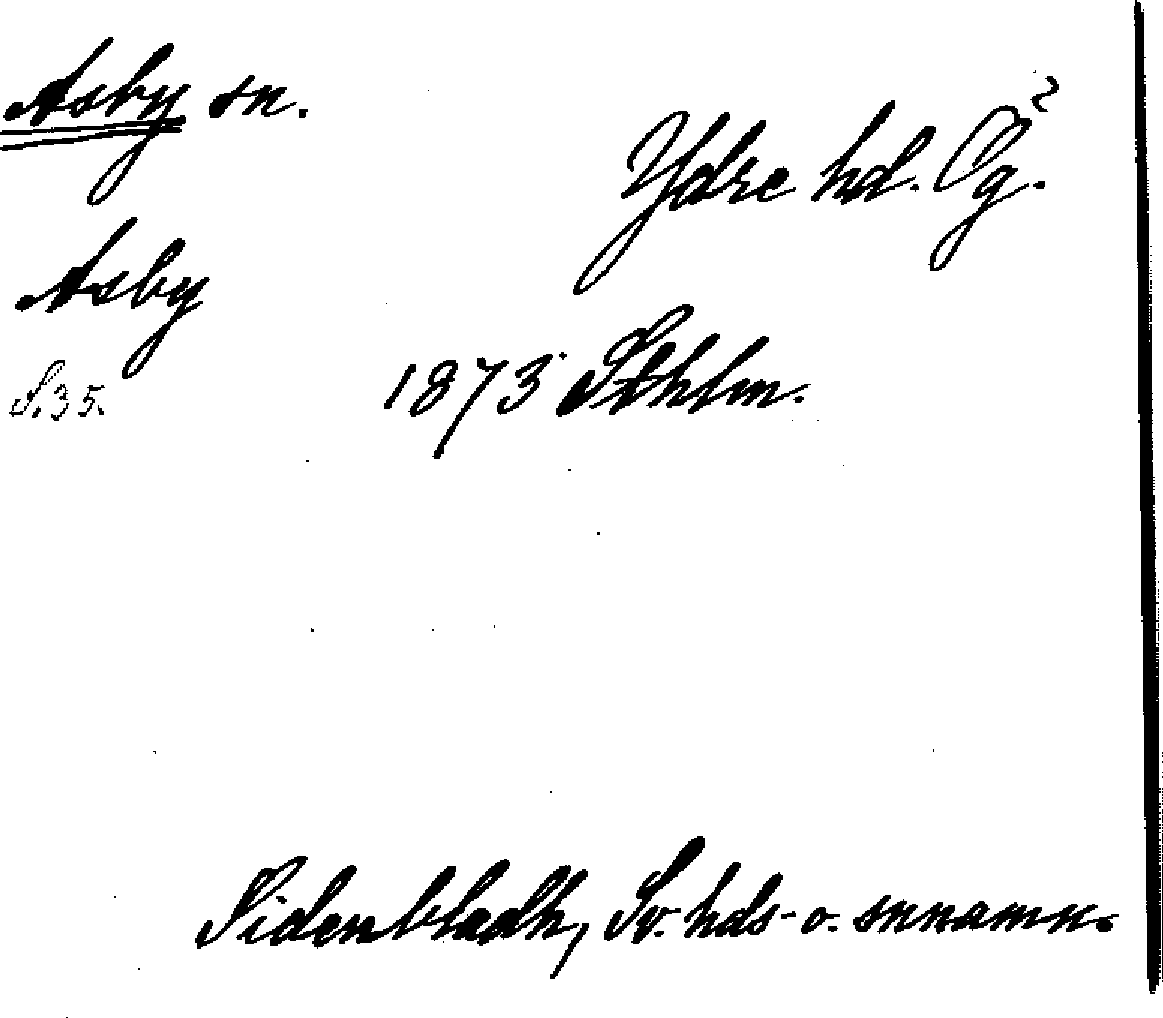 Asby sn.
Ydre hd. Ög.
Asby
S. 35.
1873 Sthlm.
Sidenbladh, Sv. hds- o. snnamn.